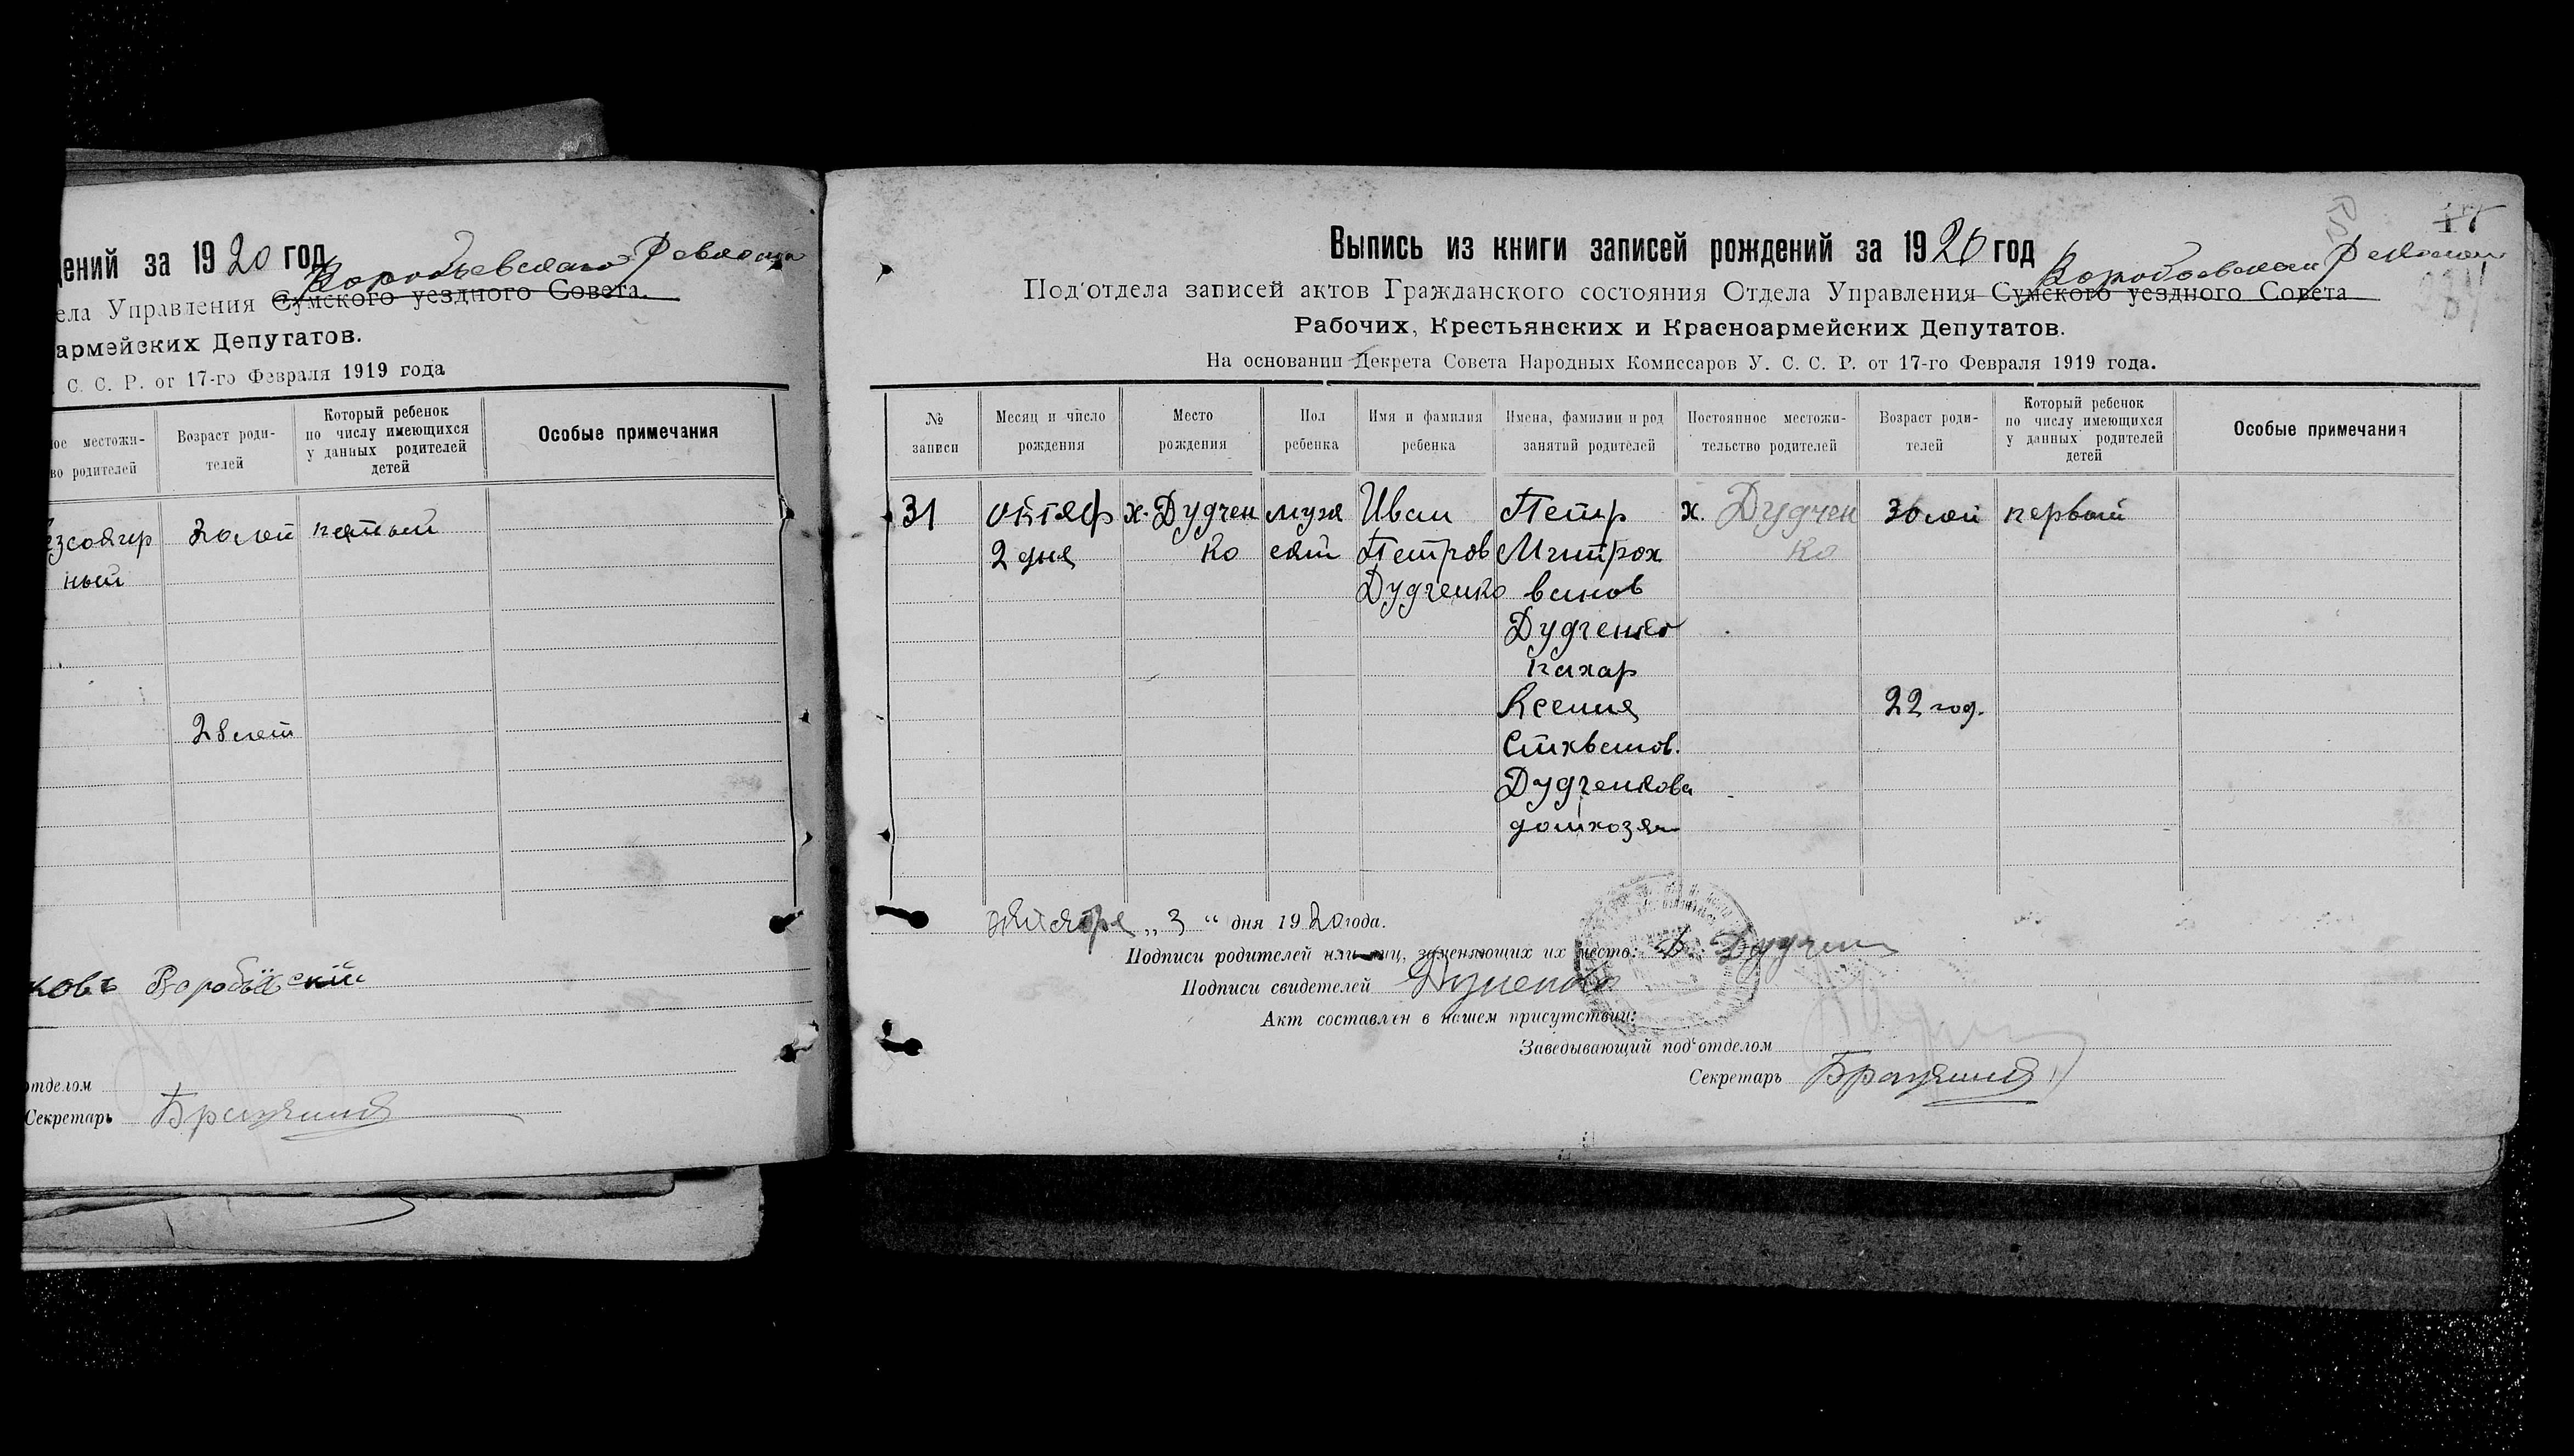 дений за 1920 год
ела Управления Сумского уездного Совета.
армейских Депутатов.
С. С. Р. от 17-го Февраля 1919 года
ное местожи-
во родителей
Возраст роди-
телей
Который ребенок
по числу имеющихся
у данных родителей
детей
Особые примечания
30 лет
пятый
ный
28 лет
ковъ
отделом
Секретарь
Выпись из книги записей рождений за 1920 год
Под'отдела записей актов Гражданского состояния Отдела Управления Сумского уездного Совета
Рабочих, Крестьянских и Красноармейских Депутатов.
На основании Декрета Совета Народных Комиссаров У. С. С. Р. от 17-го Февраля 1919 года.
№
записи
Месяц и число
рождения
Место
рождения
Пол
ребенка
Имя и фамилия
ребенка
Имена, фамилии и род
занятий родителей
Постоянное местожи-
тельство родителей
Возраст роди-
телей
Который ребенок
по числу имеющихся
у данных родителей
детей
Особые примечания
31 октяб х. Дудчен муж Иван Петр х. Дудчен 30 лет первый
2 дня ко ский Петров Митрох ко
Дудченко ванов
Дудченко
пахар
Ксения 22 год.
Дудченкова
домхозяй
октября „3“ дня 1920 года.
Подписи родителей или лиц, заменяющих их место:
Подписи свидетелей
Акт составлен в нашем присутствии:
Заведывающий под'отделом
Секретарь